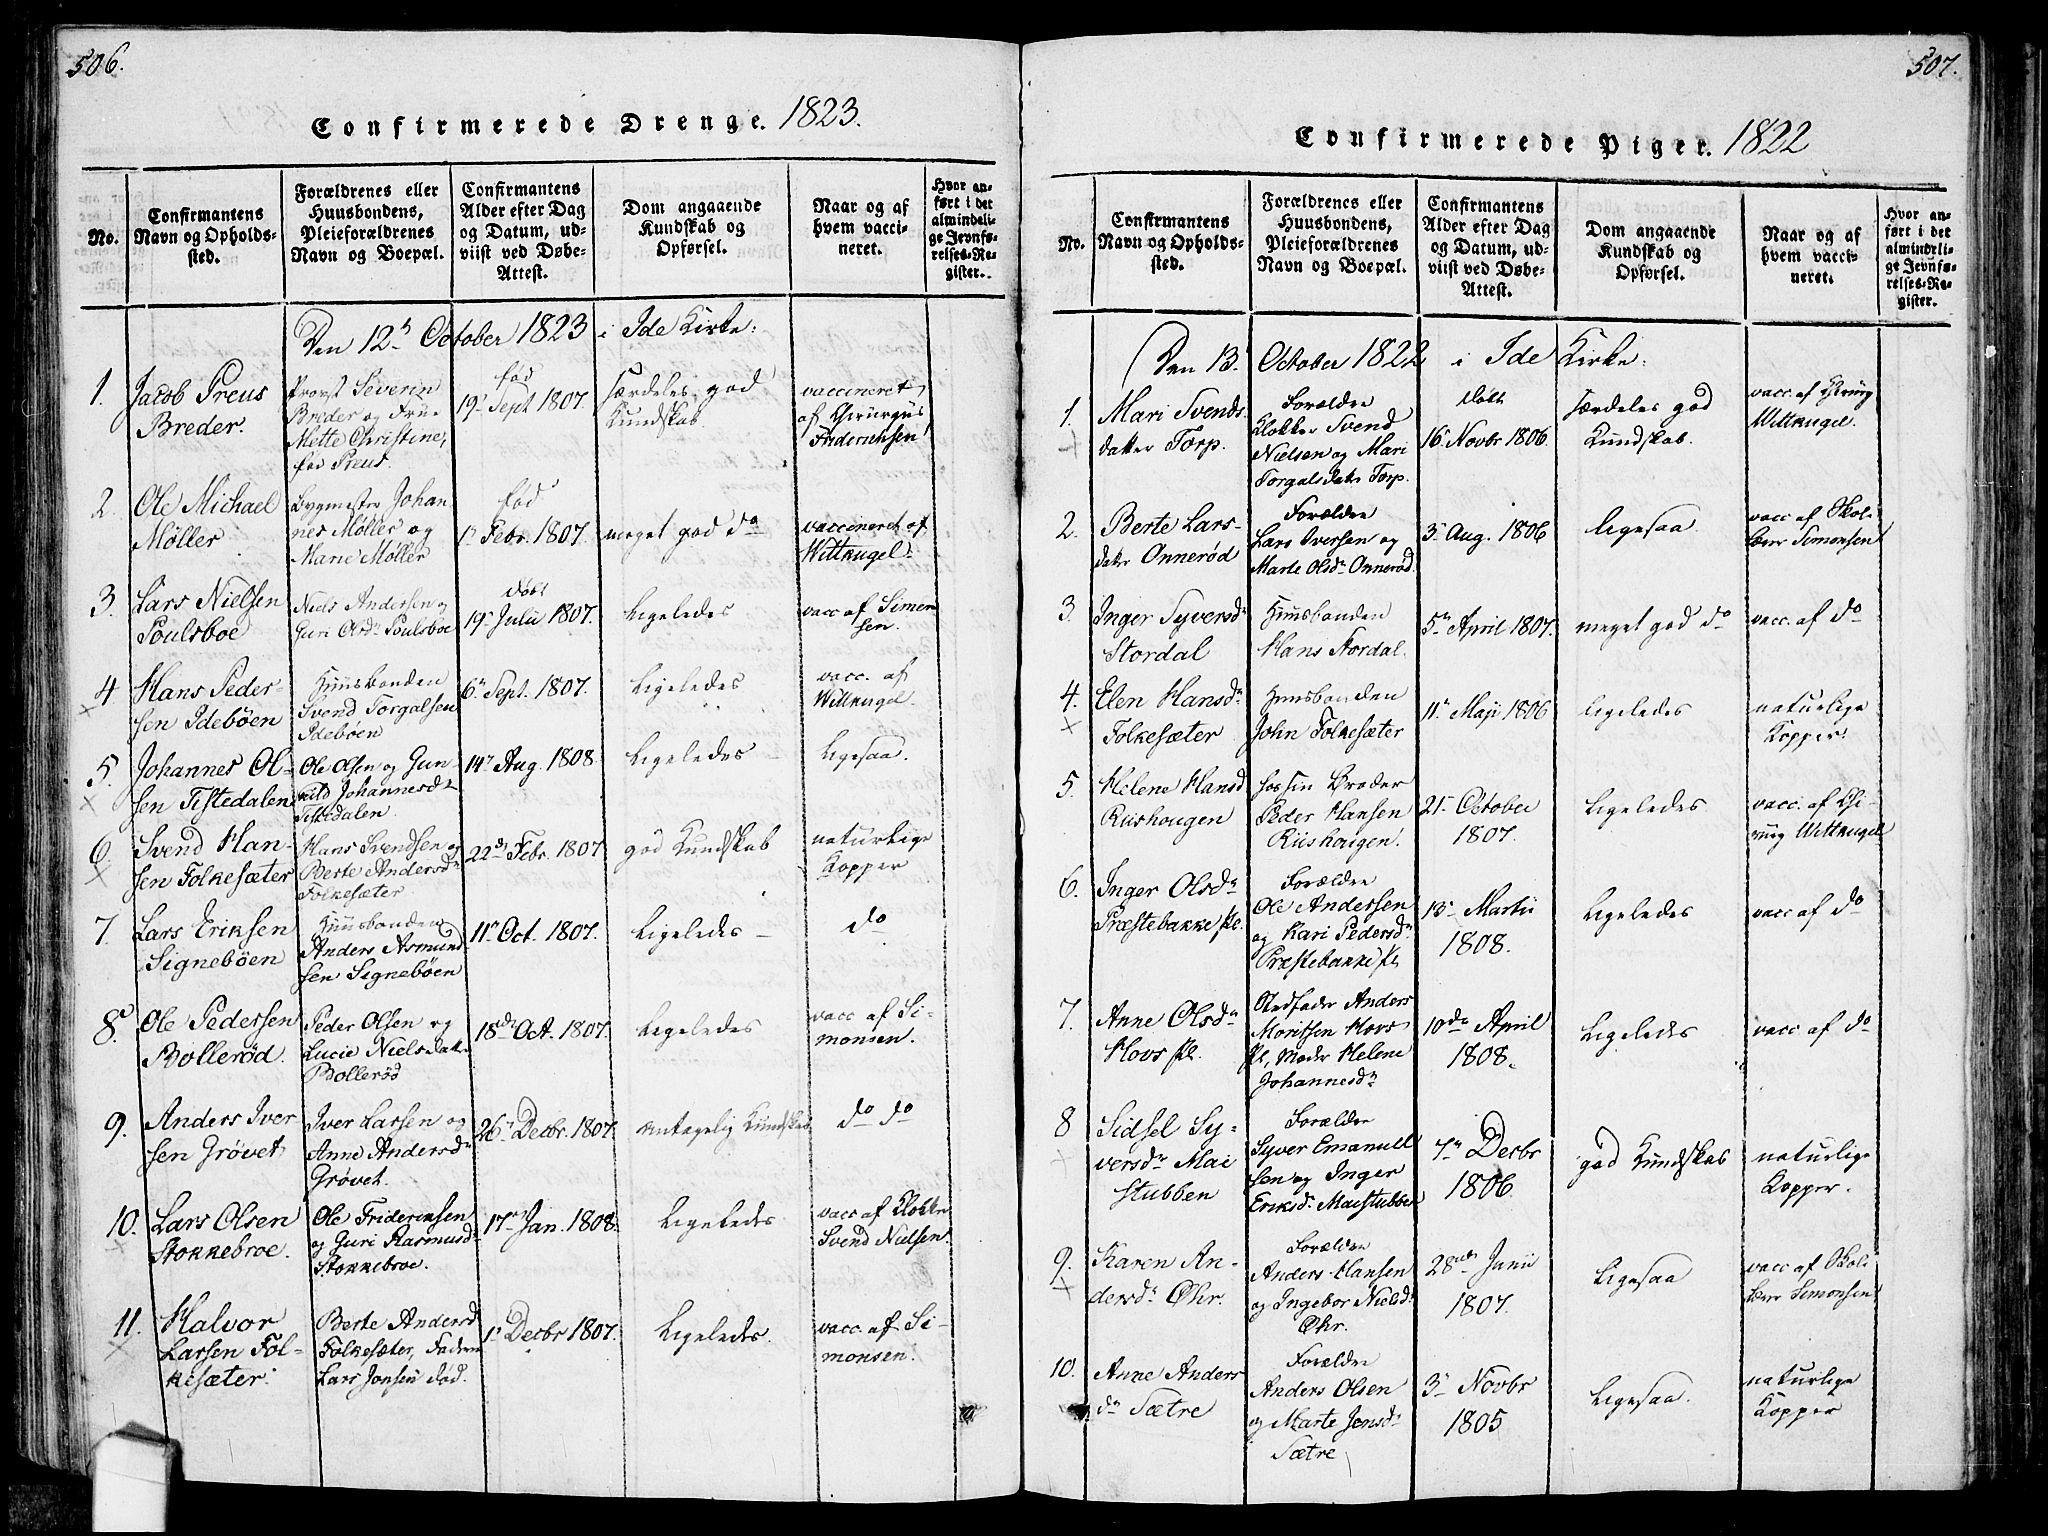 506.
Confirmerede Drenge. 1823.
No.
Confirmantens
Navn og Opholds-
sted.
Forældrenes eller
Huusbondens,
Pleieforældrenes
Navn og Boepæl.
Confirmantens
Alder efter Dag
og Datum, ud-
viist ved Døbe-
Attest.
Dom angaaende
Kundskab og
Opførsel.
Naar og af
hvem vacci-
neret.
Hvor an-
ført i det
almindeli-
ge Jevnfø-
relses-Re-
gister.
Den 12 October 1823 i Ide Kirke:
1.
Jacob Preus
Breder.
Provst Severin
Breder og Frue
Mette Christine,
fød Preus.
fød
19 Sept 1807.
særdeles god
Kundskab.
vaccineret
af Chirurgus
Friderichsen
2.
Ole Michael
Møller
Bygmester Johan
nes Møller og
Marie Møller
fød
1 Febr. 1807.
meget god do
vaccineret af
Wittkugel.
3.
Lars Nielsen
Poulsboe
Niels Andersen og
Guri Olsdr Poulsboe
døbt
19 Julii 1807.
Ligeledes
vacc af Simon
sen.
4
Hans Peder-
sen Idebøen
Huusbonden
Svend Torgalsen
Idebøen
6 Sept. 1807.
Ligeledes
vacc. af
Wittkugel.
5.
Johannes Ol-
sen Tistedalen
Ole Olsen og Gun-
hild Johannesdr
Tistedalen
14 Aug. 1808.
Ligeledes
Ligesaa.
6.
Svend Han-
sen Folkesæter
Hans Svendsen og
Berte Andersdr
Folkesæter
22d Febr. 1807
god Kundskab
naturlige
Kopper
7.
Lars Eriksen
Signebøen
Huusbonden
Anders Asmund
sen Signebøen
11 Oct. 1807.
Ligeledes
do
8.
Ole Pedersen
Bollerød.
Peder Olsen og
Lucie Nielsdatter
Bollerød
18de Oct. 1807.
Ligeledes
vacc af Si-
monsen.
9.
Anders Iver
sen Grøvet
Iver Larsen og
Anne Andersdr
Grøvet.
26 Decbr. 1807.
antagelig Kundskab
do do
10.
Lars Olsen
Stokkebroe.
Ole Friderichsen
og Guri Rasmusdr
Stokkebroe.
17 Jan. 1808.
Ligeledes
vacc af Klokker
Svend Nielsen.
11.
Halvor
Larsen Fol-
kesæter.
Berte Andersd
Folkesæter, Faderen
Lars Jonsen død.
1 Decbr 1807.
Ligeledes.
vacc. af Si-
monsen.
507.
Confirmerede Piger. 1822
No.
Confirmantens
Navn og Opholds-
sted.
Forældrenes eller
Huusbondens,
Pleieforældrenes
Navn og Boepæl.
Confirmantens
Alder efter Dag
og Datum, ud-
viist ved Døbe-
Attest.
Dom angaaende
Kundskab og
Opførsel.
Naar og af
hvem vacci-
neret.
Hvor an-
ført i det
almindeli-
ge Jevnfø-
relses-Re-
gister.
Den 13. October 1822 i Ide Kirke:
1.
Mari Svends
datter Torp.
Forældre
Klokker Svend
Nielsen og Mari
Torgalsdater Torp.
døbt
16 Novbr 1806.
særdeles god
Kundskab.
vacc. af Chirurg
Wittkugel.
2.
Berte Lars-
dater Onnerød
Forældre
Lars Iversen og
Marte Olsdr Onnerød.
3 Aug. 1806
Ligesaa
vacc af Skol-
lærer Simonsen
3.
Inger Syversdr
Stordal
Huusbonden
Hans Stordal.
5 April 1807.
meget god do
vacc. af do
4.
Elen Hansdr
Folkesæter
Huusbonden
John Folkesæter
11 Maji 1806
Ligeledes
naturlige
Kopper.
5.
Helene Hansd
Riishougen
hos sin Broder
Peder Hansen
Riishougen.
21 October
1807.
Ligeledes
vacc. af Chi-
rurg Wittkugel
6.
Inger Olsdr
Præstebakke Pl.
Forældre
Ole Andersen
og Kari Pedersdr
Præstebakke Pl
13 Martii
1808.
Ligeledes
vacc af do
7.
Anne Olsdr
Hovs Pl.
Stedfader Anders
Moritsen Hovs
Pl, Moder Helene
Johannesdr
10de April
1808.
Ligeledes
vacc af do
8
Sidsel Sy-
versdr Mai
stubben
Forældre
Syver Emanuel
sen og Inger
Eriksdr Maistubben
7 Decbr
1806.
god Kundskab
naturlige
Kopper.
9.
Karen An-
dersdr Øhr.
Forældre
Anders Hansen
og Ingebor Nielsdr
Øhr.
28 Junii
1807.
Ligesaa
vacc af Skol-
lærer Simonsen
10.
Anne Anders
dr Sætre
Forældre
Anders Olsen
og Marte Jensdr
Sætre
3 Novbr
1805
Ligesaa.
naturlige
Kopper